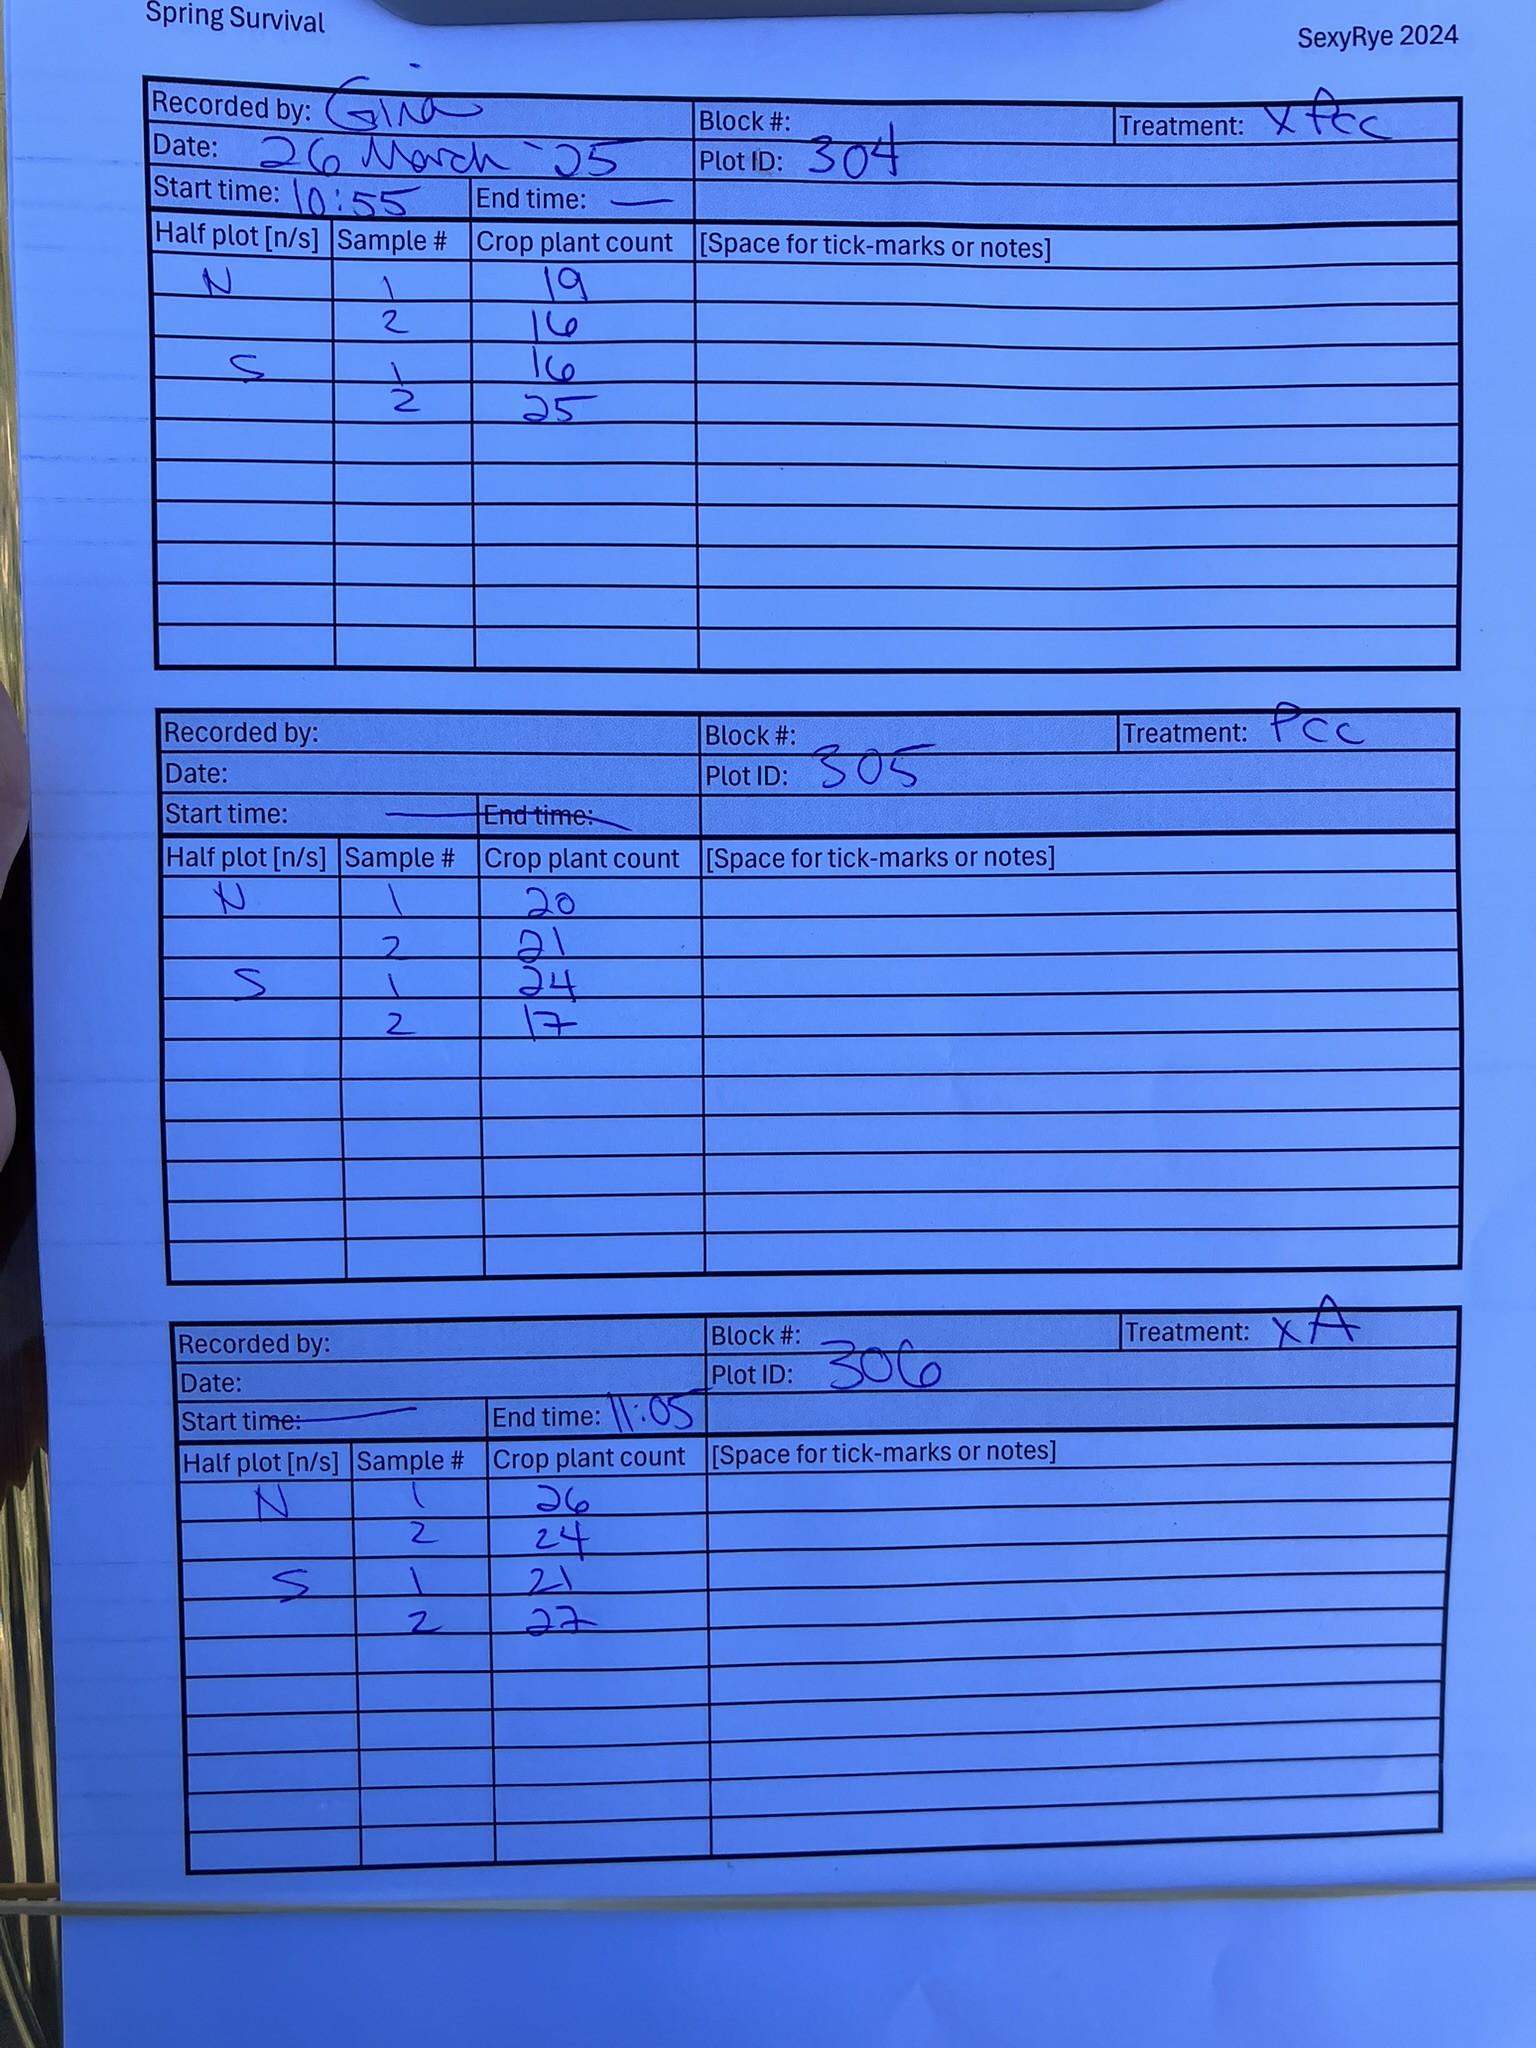 Spring Survival
SexyRye 2024
Recorded by: Gina Block #: Treatment: x Pcc
Date: 26 March '25 Plot ID: 304
Start time: 10:55 End time: —
Half plot [n/s] Sample # Crop plant count [Space for tick-marks or notes]
N 1 19
2 16
S 1 16
2 25
Recorded by: Block #: Treatment: Pcc
Date: Plot ID: 305
Start time: — End time:
Half plot [n/s] Sample # Crop plant count [Space for tick-marks or notes]
N 1 20
2 21
S 1 24
2 17
Recorded by: Block #: Treatment: xA
Date: Plot ID: 306
Start time: — End time: 11:05
Half plot [n/s] Sample # Crop plant count [Space for tick-marks or notes]
N 1 26
2 24
S 1 21
2 27